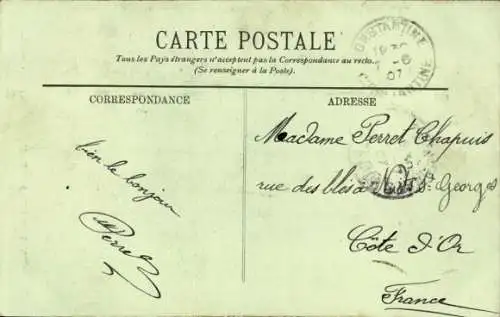 CARTE POSTALE
Tous les Pays étrangers n'acceptent pas la Correspondance au recto.
(Se renseigner à la Poste).
CORRESPONDANCE
ADRESSE
CONSTANTINE
CONSTANTINE
07
bien le bonjour
Perret
Madame Perret Chapuis
rue des blés à Nuits St Georges
Côte d'Or
France